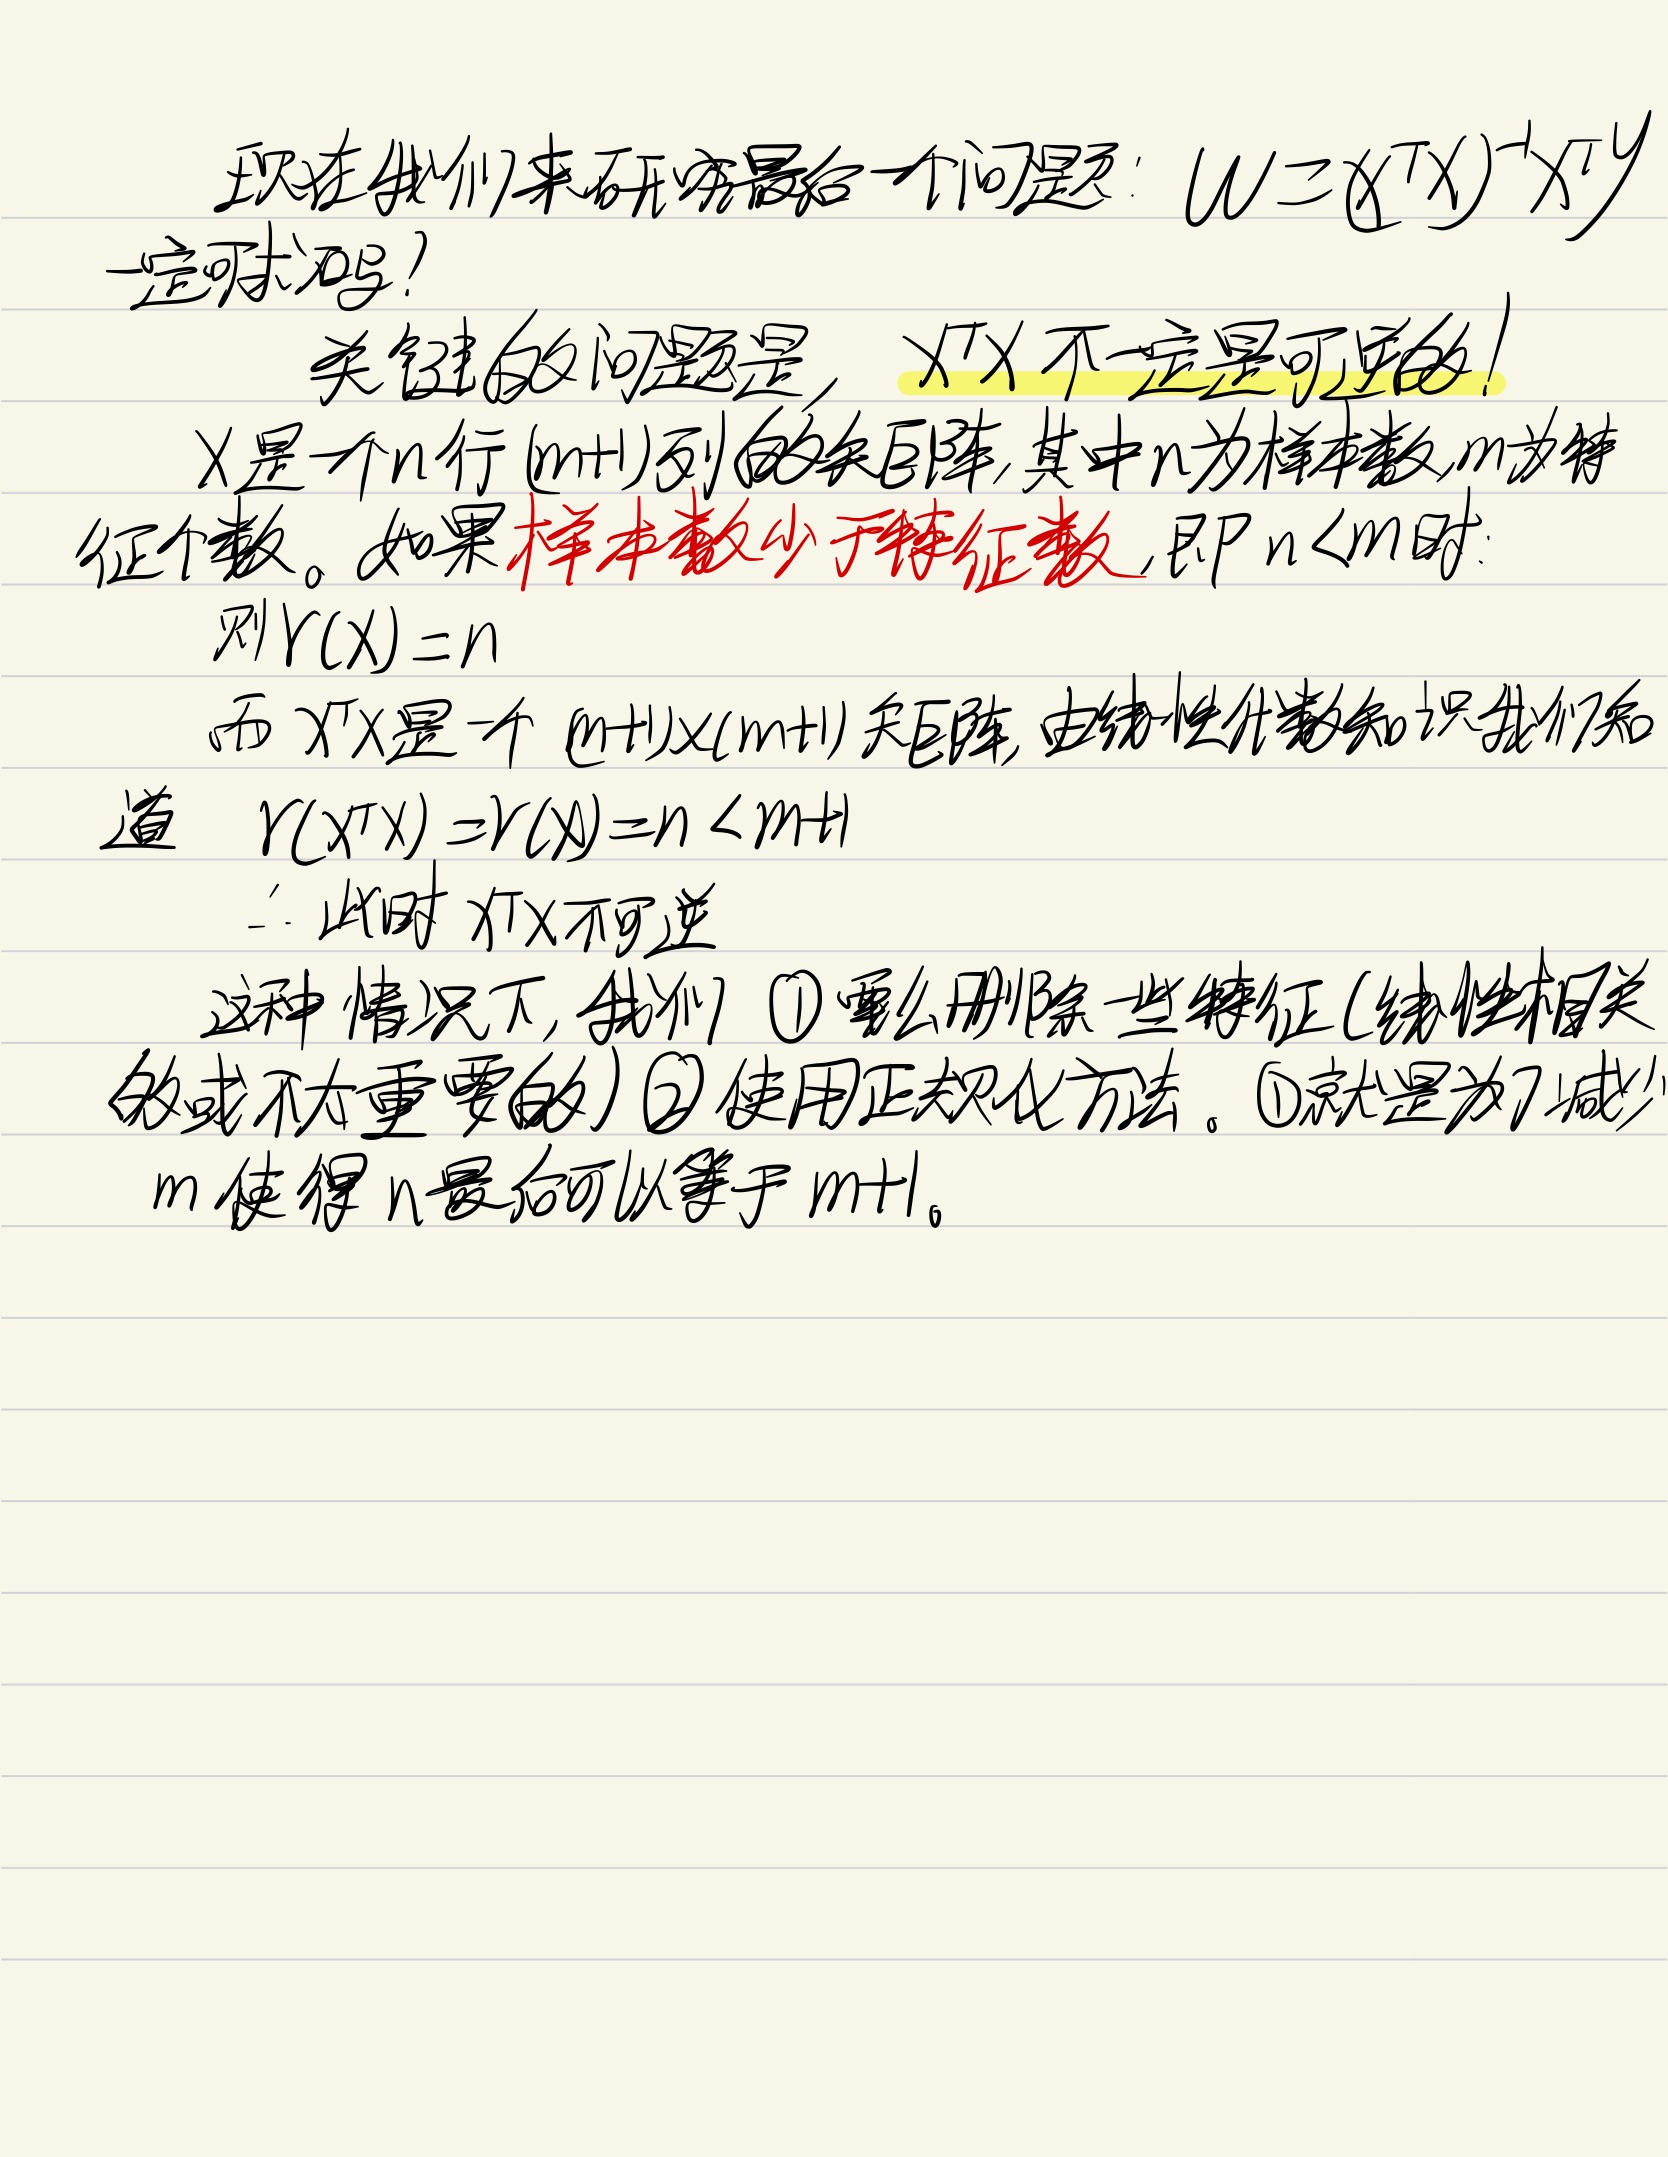 现在我们来研究最后一个问题: W=(XᵀX)⁻¹Xᵀy
一定可求吗?
关键的问题是, XᵀX不一定是可逆的!
X是一个n行(m+1)列的矩阵,其中n为样本数,m为特
征个数。如果样本数少于特征数,即n<m时:
则r(X)=n
而XᵀX是一个(m+1)×(m+1)矩阵,由线性代数知识我们知
道 r(XᵀX)=r(X)=n<m+1
∴此时XᵀX不可逆
这种情况下,我们①要么删除一些特征(线性相关
的或不太重要的)②使用正规化方法。①就是为了减少
m使得n最后可以等于m+1。